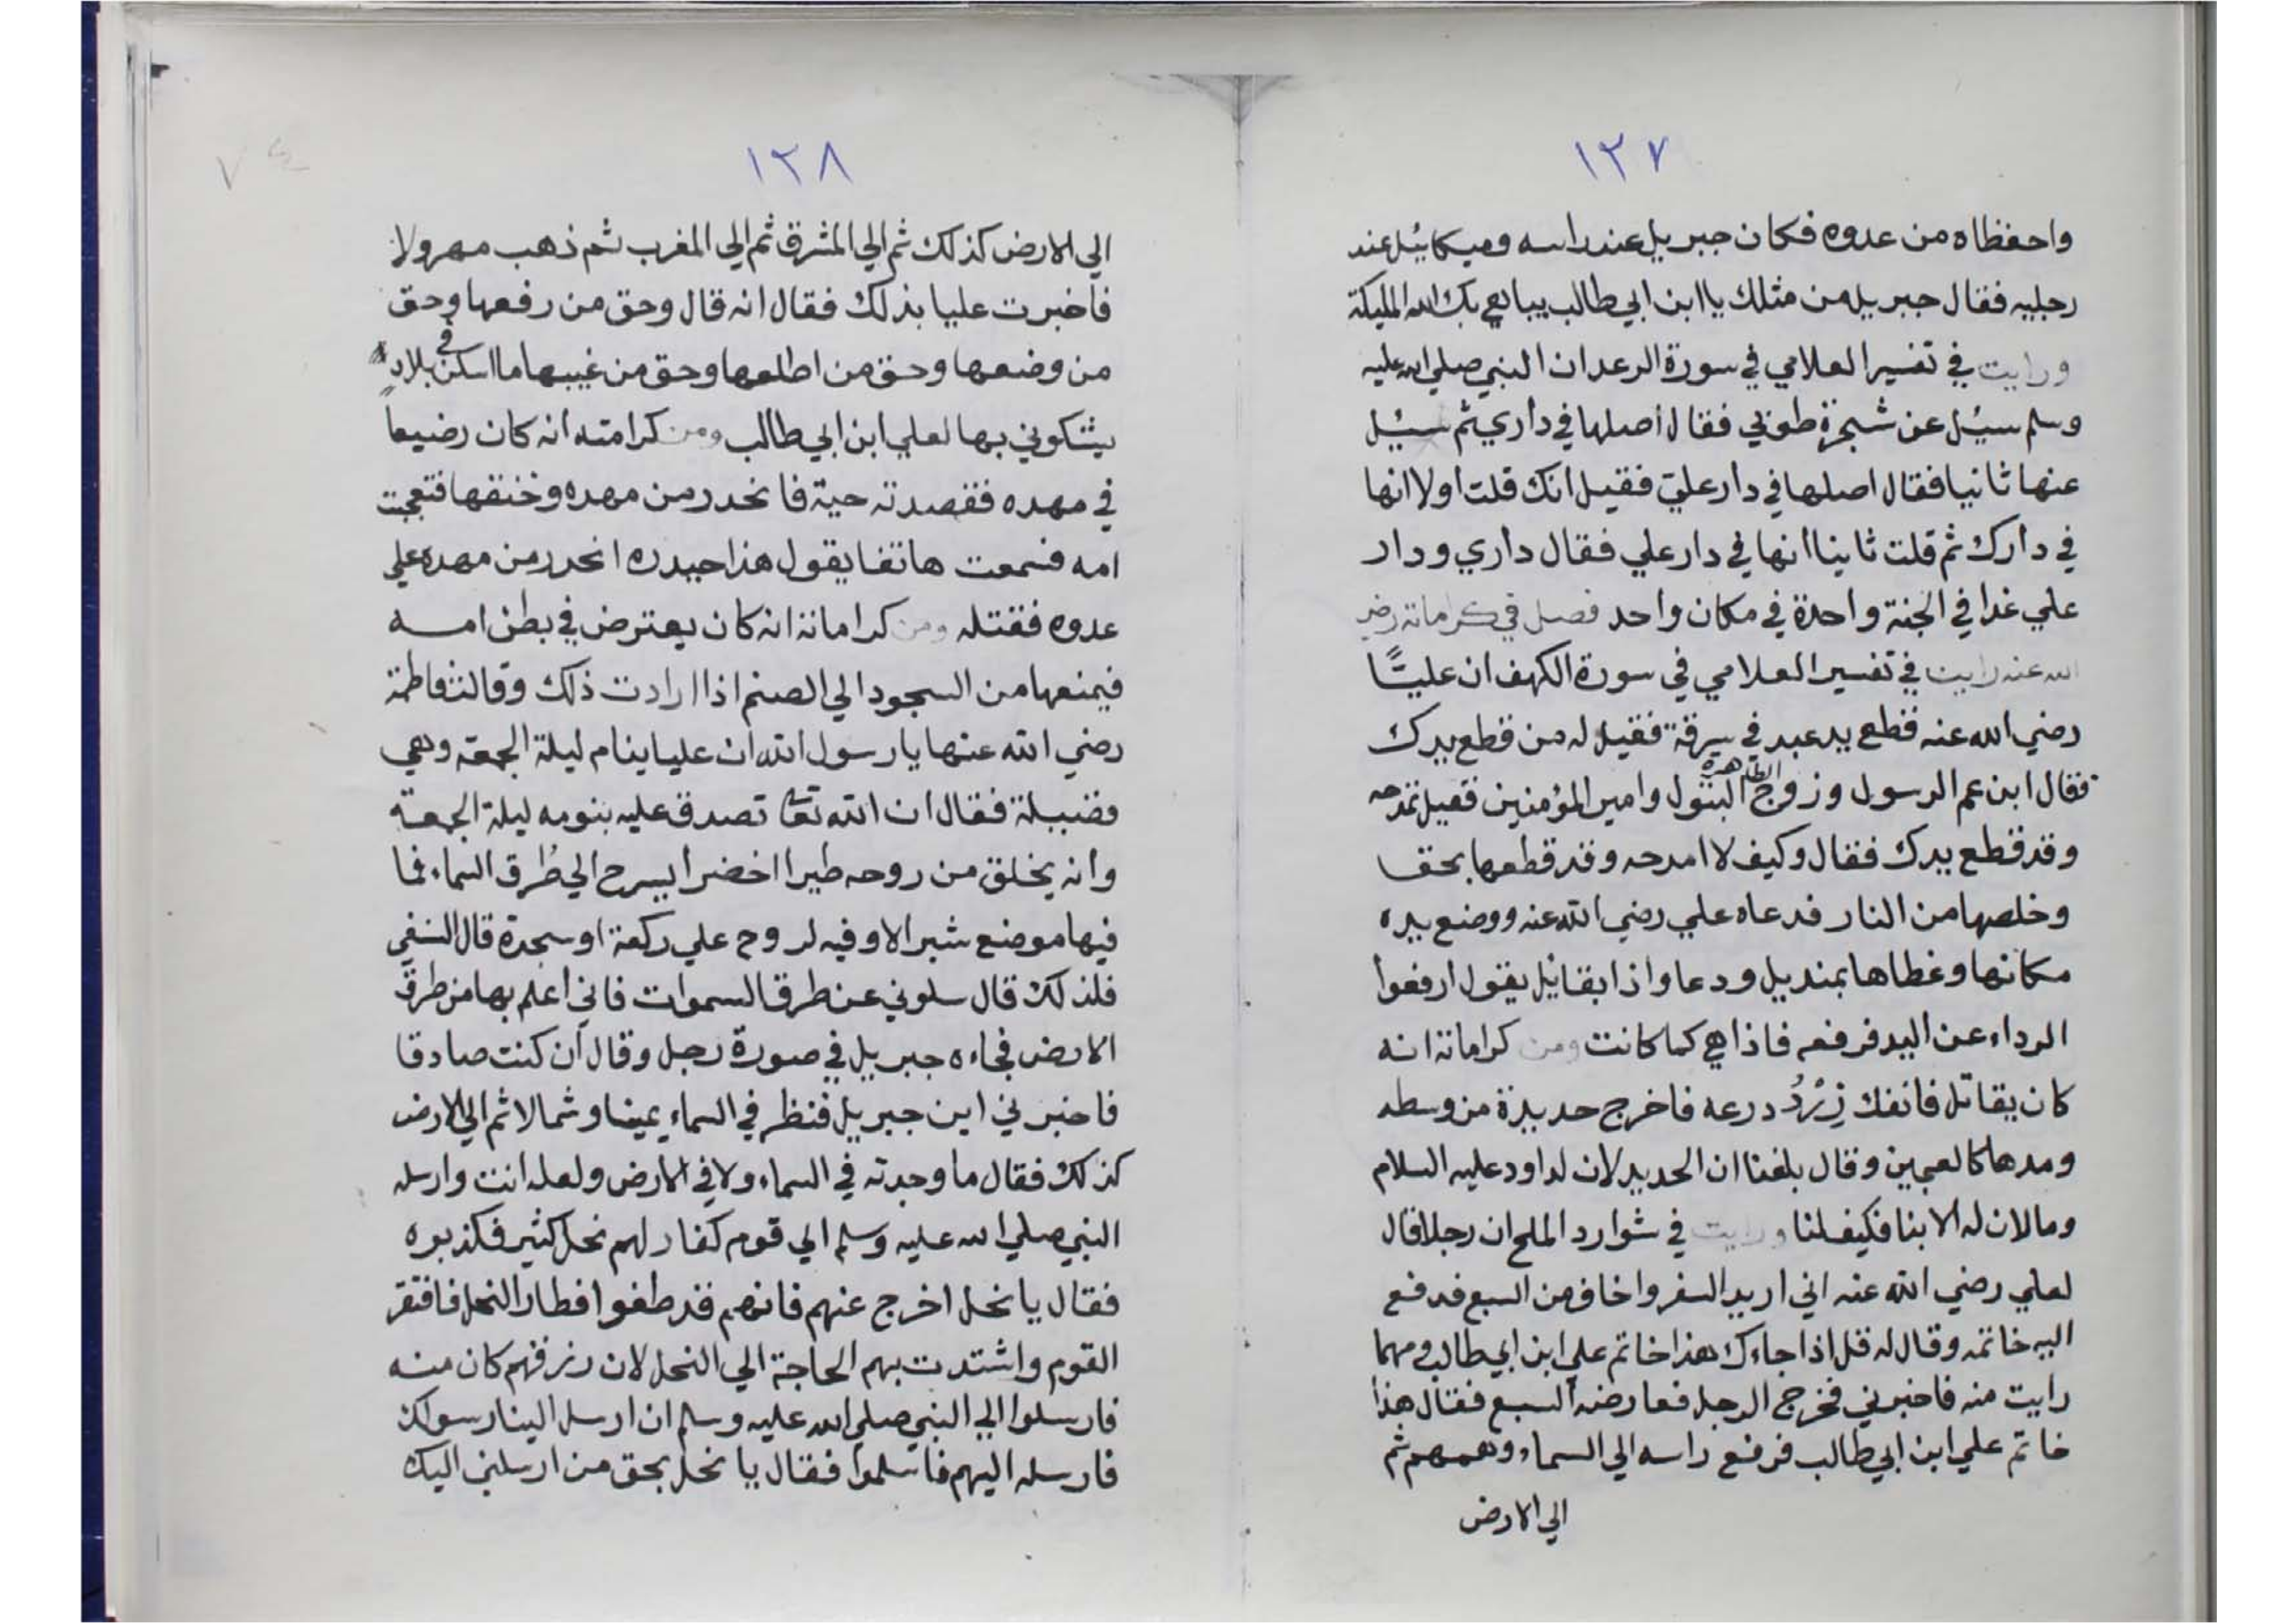 ١٢٧
واحفظاه من عدوه فكان جبريل عند راسه وميكائيل عند
رجليه فقال جبريل من مثلك يا ابن ابي طالب يباهي بك الله المليكة
ورايت في تفسير العلامي في سورة الرعد ان النبي صلي الله عليه
وسلم سيُل عن شجرة طوبي فقال أصلها في داري ثم سيُل
عنها ثانيا فقال اصلها في دار علي فقيل انك قلت اولا انها
في دارك ثم قلت ثانيا انها في دار علي فقال داري ودار
علي غدا في الجنة واحدة في مكان واحد فصل في كراماته رضي
الله عنه رايت في تفسير العلامي في سورة الكهف ان عليًّا
رضي الله عنه قطع يد عبد في سرقة فقيل له من قطع يدك
فقال ابن عم الرسول وزوج الطاهرة البتول وامير المؤمنين فقيل تمدحه
وقد قطع يدك فقال وكيف لا امدحه وقد قطعها بحق
وخلصها من النار فدعاه علي رضي الله عنه ووضع يده
مكانها وغطاها بمنديل ودعا واذا بقائل يقول ارفعوا
الرداء عن اليد فرفعه فاذا هي كما كانت ومن كراماته انه
كان يقاتل فانفك زِرْدُ درعه فاخرج حديدة من وسطه
ومدها كالعجين وقال بلغنا ان الحديد لان لداود عليه السلام
وما لان له الا بنا فكيف لنا ورايت في شوارد الملح ان رجلا قال
لعلي رضي الله عنه اني اريد السفر واخاف من السبع فدفع
اليه خاتمه وقال له قل اذا جاءك هذا خاتم علي ابن ابي طالب ومهما
رايت منه فاخبرني فخرج الرجل فعارضه السبع فقال هذا
خاتم علي ابن ابي طالب فرفع راسه الي السماء وهمهم ثم
الي الارض
١٢٨
الي الارض كذلك ثم الي المشرق ثم الي المغرب ثم ذهب مهرولا
فاخبرت عليا بذلك فقال انه قال وحق من رفعها وحق
من وضعها وحق من اطلعها وحق من غيبها ما اسكن في بلاد
يشكوني بها لعلي ابن ابي طالب ومن كرامته انه كان رضيعاً
في مهده فقصدته حية فانحدر من مهده وخنقها فتعجبت
امه فسمعت هاتفا يقول هذا حيدره انحدر من مهده علي
عدوه فقتله ومن كراماته انه كان يعترض في بطن امه
فيمنعها من السجود الي الصنم اذا ارادت ذلك وقالت فاطمة
رضي الله عنها يا رسول الله ان عليا ينام ليلة الجمعة وهي
فضيلة فقال ان الله تعا تصدق عليه بنومه ليلة الجمعة
وانه يخلق من روحه طيرا اخضرا يسرح الي طُرق السماء فما
فيها موضع شبر الا وفيه لروح علي ركعة او سجدة قال النسفي
فلذلك قال سلوني عن طرق السموات فاني أعلم بها من طرق
الارض فجاءه جبريل في صورة رجل وقال ان كنت صادقا
فاخبرني اين جبريل فنظر في السماء يمينا وشمالا ثم الي الارض
كذلك فقال ما وجدته في السماء ولا في الارض ولعله انت وارسله
النبي صلي الله عليه وسلم الي قوم كفار لهم نحل كثير فكذبوه
فقال يا نحل اخرج عنهم فانهم قد طغوا فطار النحل فافتقر
القوم واشتدت بهم الحاجة الي النحل لان رزقهم كان منه
فارسلوا الي النبي صلي الله عليه وسلم ان ارسل الينا رسولك
فارسله اليهم فاسلموا فقال يا نحل بحق من ارسلني اليك